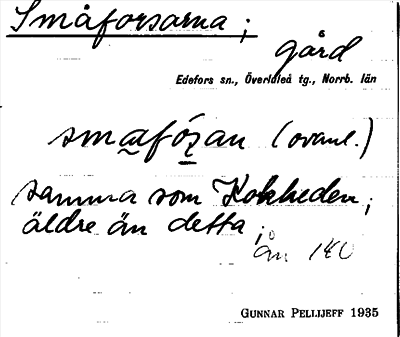 Småforsarna;
gård
Edefors sn., Överluleå tg., Norrb. län
smafósan (ovanl.)
samma som Kokheden;
äldre än detta;
än 140
GUNNAR PELLIJEFF 1935